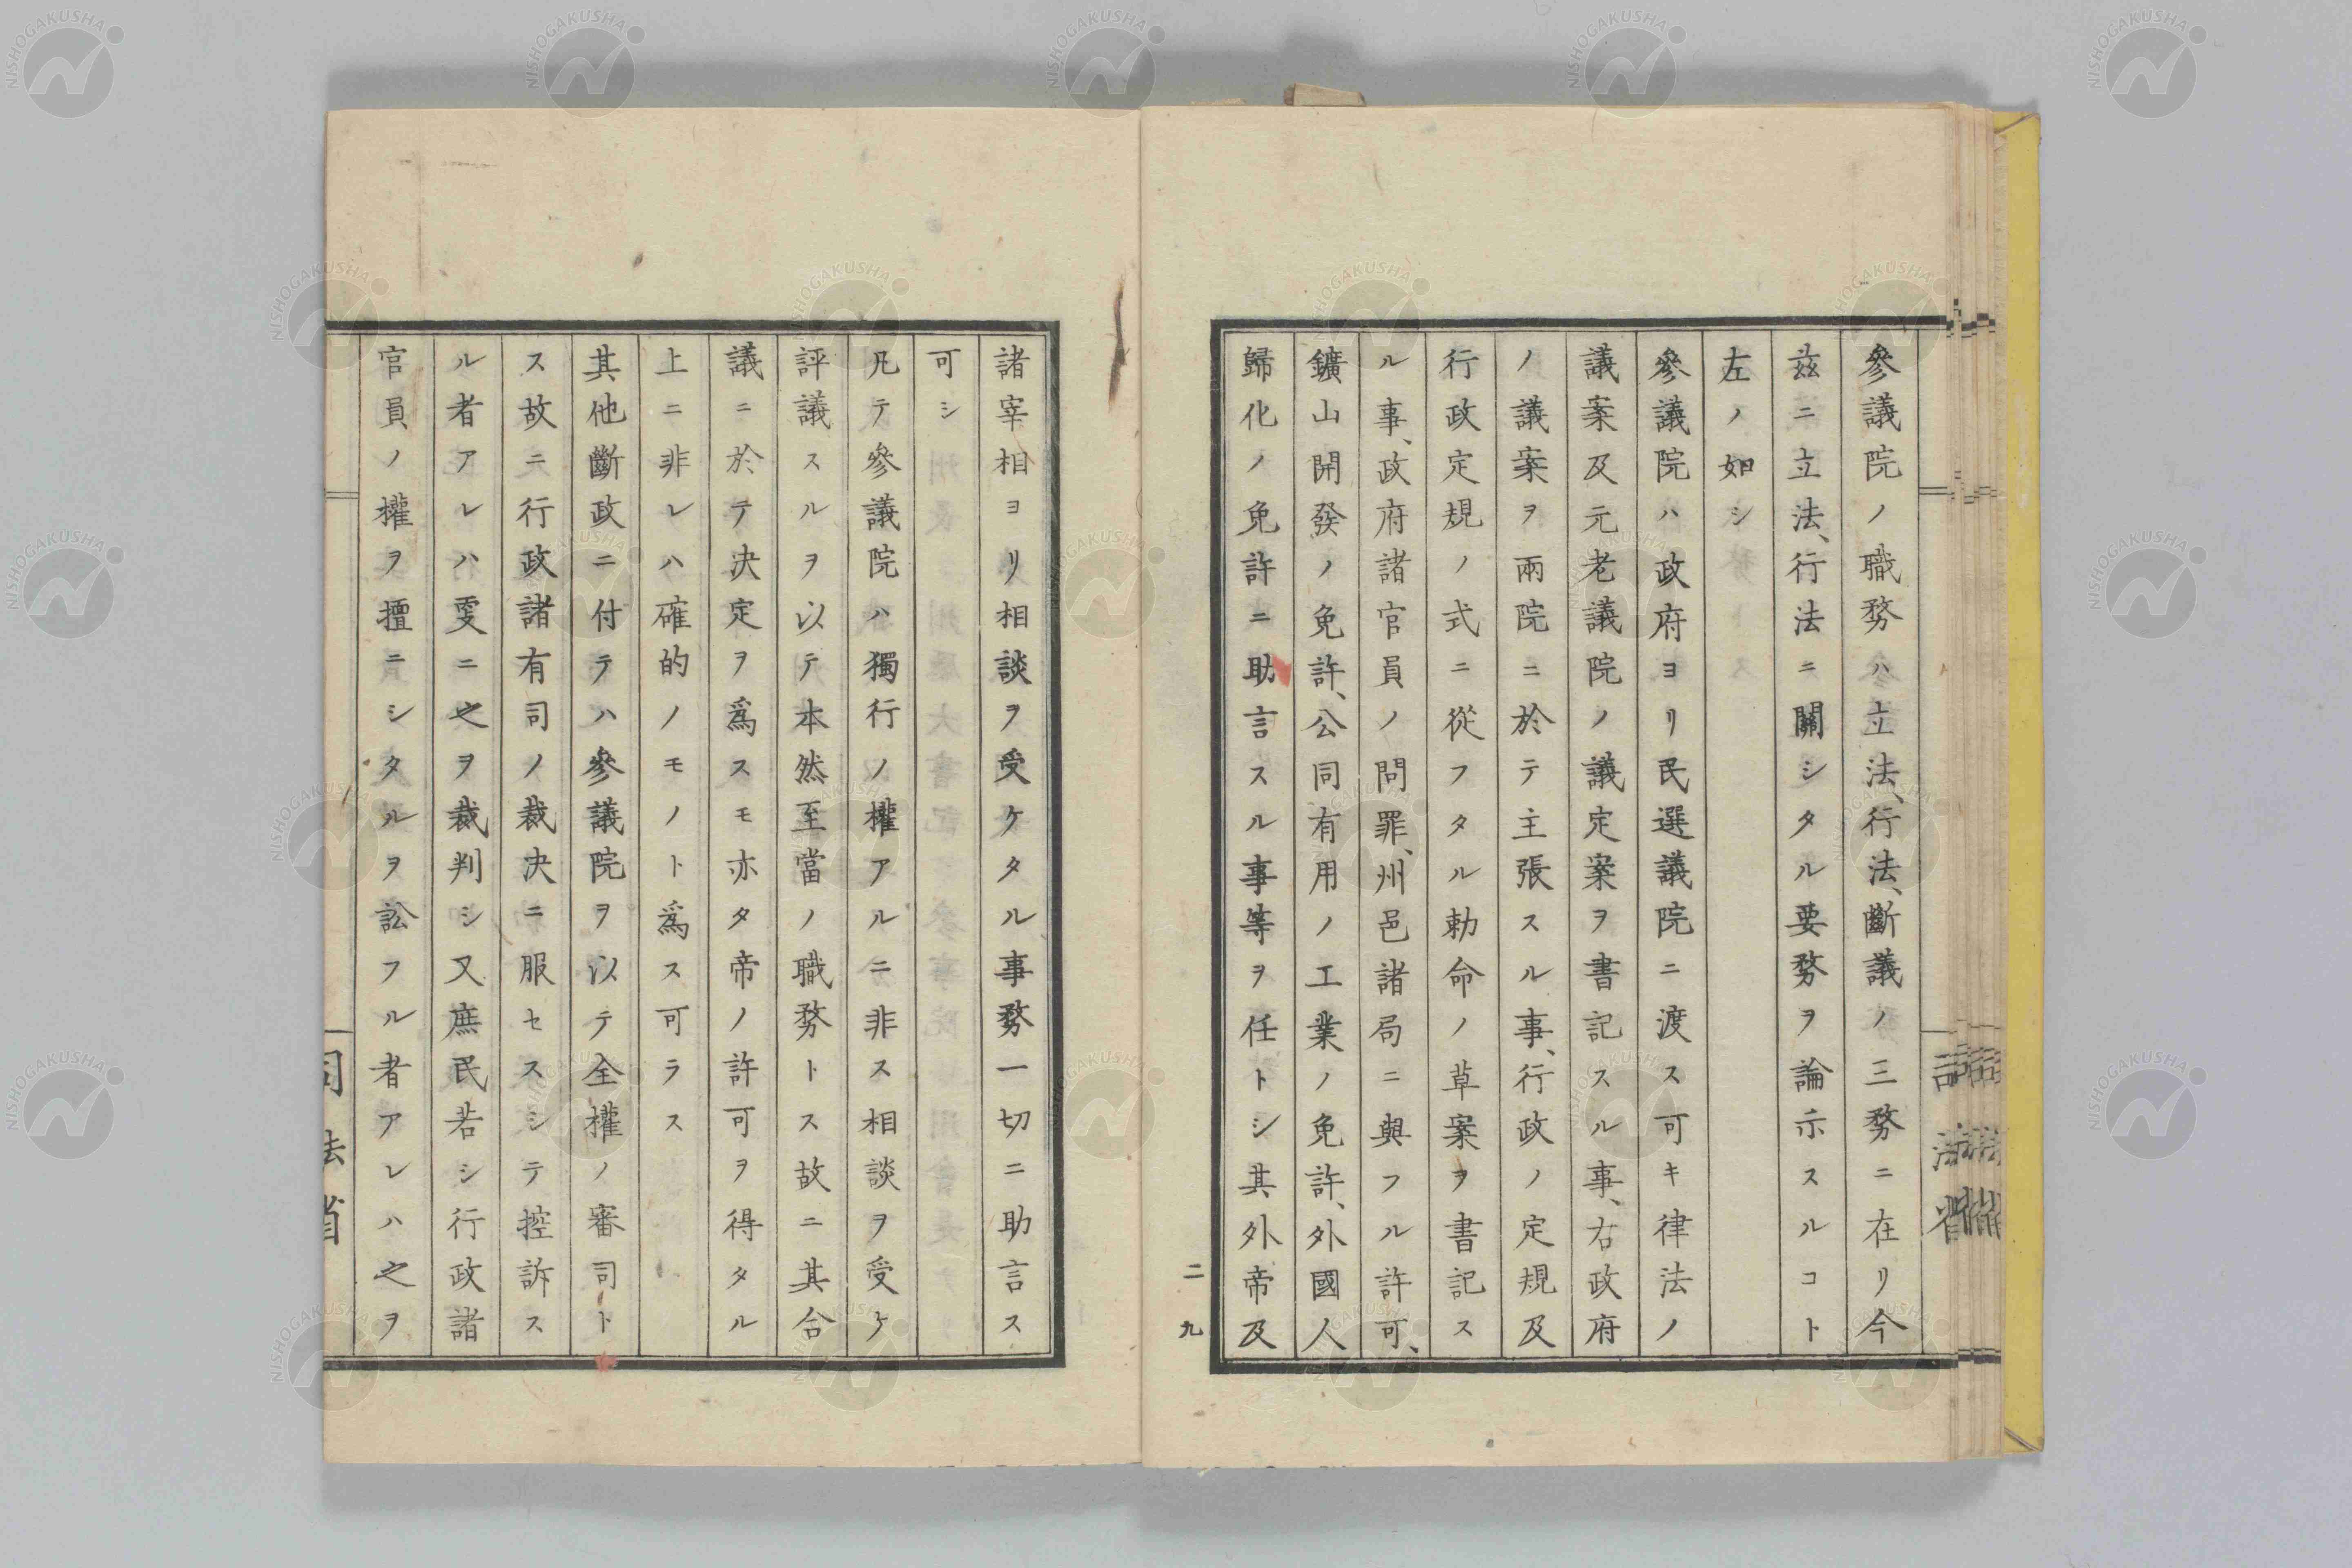 參議院ノ職務ハ立法、行法、斷議ノ三務ニ在リ今
茲ニ立法、行法ニ關シタル要務ヲ論示スルコト
左ノ如シ
參議院ハ政府ヨリ民選議院ニ渡ス可キ律法ノ
議案及元老議院ノ議定案ヲ書記スル事、右政府
ノ議案ヲ兩院ニ於テ主張スル事、行政ノ定規及
行政定規ノ式ニ從フタル勅命ノ草案ヲ書記ス
ル事、政府諸官員ノ問罪、州邑諸局ニ與フル許可、
鑛山開發ノ免許、公同有用ノ工業ノ免許、外國人
歸化ノ免許ニ助言スル事等ヲ任トシ其外帝及
二九
諸宰相ヨリ相談ヲ受ケタル事務一切ニ助言ス
可シ
凡テ參議院ハ獨行ノ權アルニ非ス相談ヲ受ケ
評議スルヲ以テ本然至當ノ職務トス故ニ其合
議ニ於テ決定ヲ爲スモ亦タ帝ノ許可ヲ得タル
上ニ非レハ確的ノモノト爲ス可ラス
其他斷政ニ付テハ參議院ヲ以テ全權ノ審司ト
ス故ニ行政諸有司ノ裁決ニ服セスシテ控訴ス
ル者アレハ更ニ之ヲ裁判シ又庶民若シ行政諸
官員ノ權ヲ擅ニシタルヲ訟フル者アレハ之ヲ
司法省
NISHOGAKUSHA